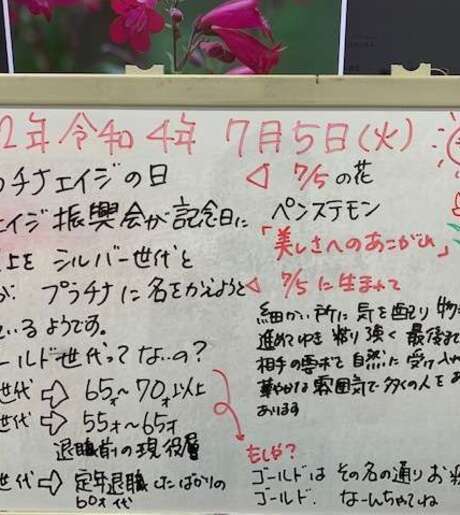 2年 令和4年 7月5日(火)
ラチナエイジの日
エイジ振興会が記念日に
上を シルバー世代と
が プラチナに名をかえようと
ているようです。
ールド世代ってないの?
世代 ⇨ 65才〜70才以上
世代 ⇨ 55才〜65才
退職前の現役層
世代 ⇨ 定年退職したばかりの
60才代
◁ 7/5の花
ペンステモン
「美しさへのあこがれ」
◁ 7/5に生まれて
細かい所に気を配り 物
進めてゆき 粘り強く 最後ま
相手の要求を自然に受け入れ
華やかな雰囲気で多くの人を
あります
もしや?
ゴールドは その名の通り お
ゴールド. なーんちゃてね